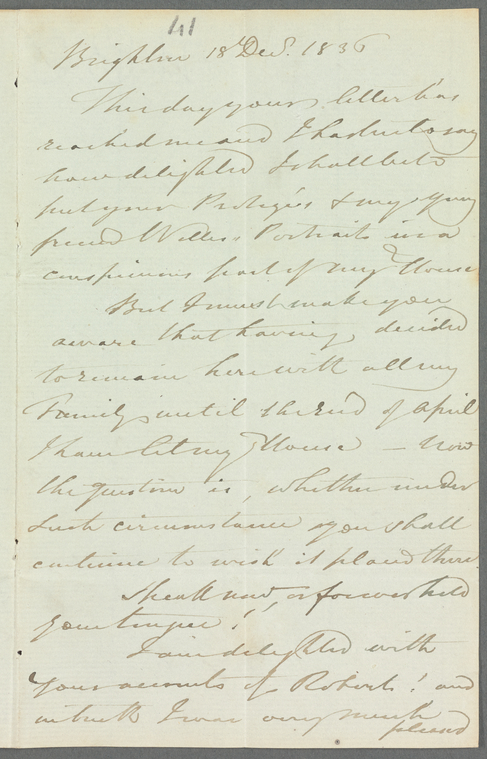 41
Brighton 18 Dec. 1836
This day your letter has
reached me and I hasten to say
how delighted I shall be to
put your Protegé's & my young
friend Willis's Portrait in a
conspicuous part of my House
But I must make you
aware that having decided
to remain here with all my
Family until the end of April
I have let my House — Now
the question is, whether under
such circumstance you shall
continue to wish it placed there.
Speak now, or forever hold
your tongue!
I am delighted with
your accounts of Roberts! and
in truth I was very much
pleased